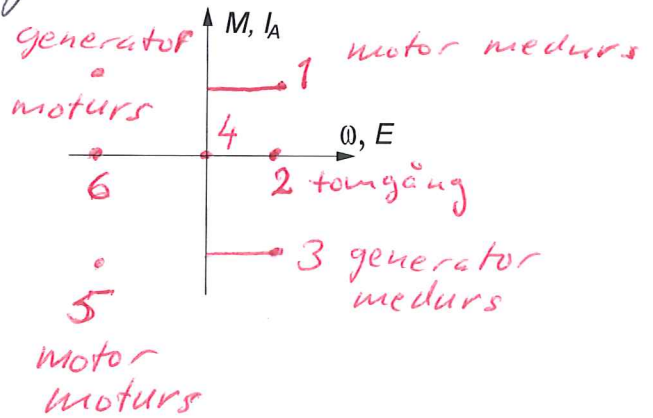 M, I_A
generator
moturs
1 motor medurs
4
ω, E
6
2 tomgång
3 generator
medurs
5
motor
moturs